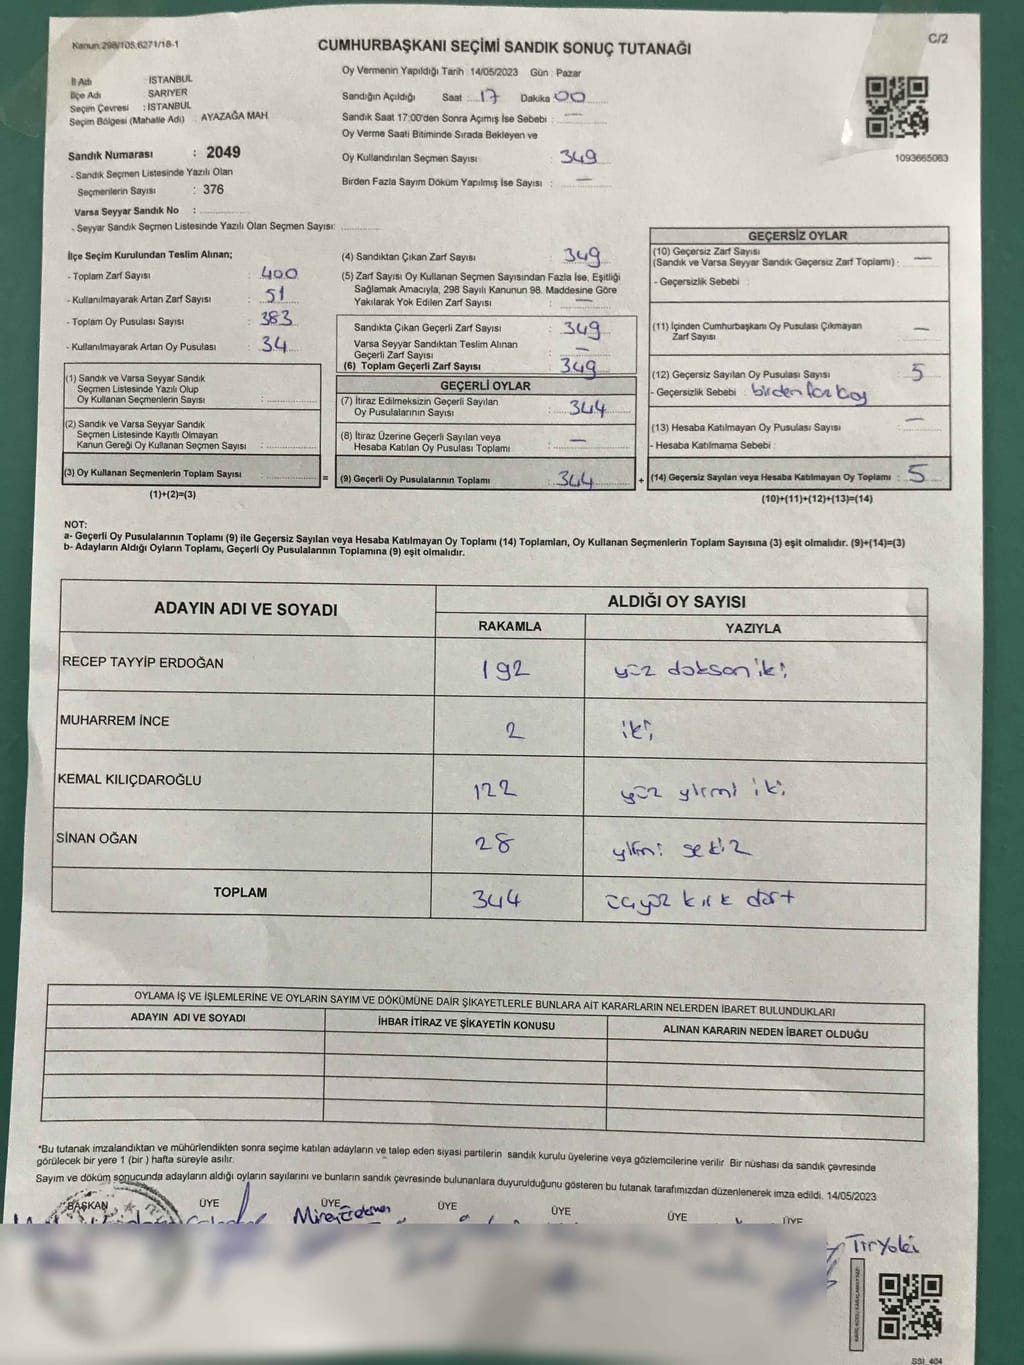 Kanun:298/105;6271/18-1
C/2
CUMHURBAŞKANI SEÇİMİ SANDIK SONUÇ TUTANAĞI
İl Adı : İSTANBUL
İlçe Adı : SARIYER
Seçim Çevresi : İSTANBUL
Seçim Bölgesi (Mahalle Adı) : AYAZAĞA MAH.
Sandık Numarası : 2049
- Sandık Seçmen Listesinde Yazılı Olan
Seçmenlerin Sayısı : 376
Varsa Seyyar Sandık No :
- Seyyar Sandık Seçmen Listesinde Yazılı Olan Seçmen Sayısı:
Oy Vermenin Yapıldığı Tarih : 14/05/2023 Gün : Pazar
Sandığın Açıldığı Saat : 17 Dakika 00
Sandık Saat 17:00'den Sonra Açımış İse Sebebi : —
Oy Verme Saati Bitiminde Sırada Bekleyen ve
Oy Kullandırılan Seçmen Sayısı : 349
Birden Fazla Sayım Döküm Yapılmış İse Sayısı : —
1093665063
İlçe Seçim Kurulundan Teslim Alınan;
- Toplam Zarf Sayısı : 400
- Kullanılmayarak Artan Zarf Sayısı : 51
- Toplam Oy Pusulası Sayısı : 383
- Kullanılmayarak Artan Oy Pusulası : 34
(1) Sandık ve Varsa Seyyar Sandık
Seçmen Listesinde Yazılı Olup
Oy Kullanan Seçmenlerin Sayısı :
(2) Sandık ve Varsa Seyyar Sandık
Seçmen Listesinde Kayıtlı Olmayan
Kanun Gereği Oy Kullanan Seçmen Sayısı :
(3) Oy Kullanan Seçmenlerin Toplam Sayısı :
(1)+(2)=(3)
(4) Sandıktan Çıkan Zarf Sayısı : 349
(5) Zarf Sayısı Oy Kullanan Seçmen Sayısından Fazla İse, Eşitliği
Sağlamak Amacıyla, 298 Sayılı Kanunun 98. Maddesine Göre
Yakılarak Yok Edilen Zarf Sayısı : —
Sandıkta Çıkan Geçerli Zarf Sayısı : 349
Varsa Seyyar Sandıktan Teslim Alınan
Geçerli Zarf Sayısı : —
(6) Toplam Geçerli Zarf Sayısı : 349
GEÇERLİ OYLAR
(7) İtiraz Edilmeksizin Geçerli Sayılan
Oy Pusulalarının Sayısı : 344
(8) İtiraz Üzerine Geçerli Sayılan veya
Hesaba Katılan Oy Pusulası Toplamı : —
= (9) Geçerli Oy Pusulalarının Toplamı : 344 +
GEÇERSİZ OYLAR
(10) Geçersiz Zarf Sayısı
(Sandık ve Varsa Seyyar Sandık Geçersiz Zarf Toplamı) : —
- Geçersizlik Sebebi :
(11) İçinden Cumhurbaşkanı Oy Pusulası Çıkmayan
Zarf Sayısı : —
(12) Geçersiz Sayılan Oy Pusulası Sayısı : 5
- Geçersizlik Sebebi : birden faz
(13) Hesaba Katılmayan Oy Pusulası Sayısı : —
- Hesaba Katılmama Sebebi :
(14) Geçersiz Sayılan veya Hesaba Katılmayan Oy Toplamı : 5
(10)+(11)+(12)+(13)=(14)
NOT:
a- Geçerli Oy Pusulalarının Toplamı (9) ile Geçersiz Sayılan veya Hesaba Katılmayan Oy Toplamı (14) Toplamları, Oy Kullanan Seçmenlerin Toplam Sayısına (3) eşit olmalıdır. (9)+(14)=(3)
b- Adayların Aldığı Oyların Toplamı, Geçerli Oy Pusulalarının Toplamına (9) eşit olmalıdır.
ADAYIN ADI VE SOYADI
ALDIĞI OY SAYISI
RAKAMLA YAZIYLA
RECEP TAYYİP ERDOĞAN 192 yüz doksan iki
MUHARREM İNCE 2 iki
KEMAL KILIÇDAROĞLU 122 yüz yirmi iki
SİNAN OĞAN 28 yirmi sekiz
TOPLAM 344 üçyüz kırk dört
OYLAMA İŞ VE İŞLEMLERİNE VE OYLARIN SAYIM VE DÖKÜMÜNE DAİR ŞİKAYETLERLE BUNLARA AİT KARARLARIN NELERDEN İBARET BULUNDUKLARI
ADAYIN ADI VE SOYADI İHBAR İTİRAZ VE ŞİKAYETİN KONUSU ALINAN KARARIN NEDEN İBARET OLDUĞU
*Bu tutanak imzalandıktan ve mühürlendikten sonra seçime katılan adayların ve talep eden siyasi partilerin sandık kurulu üyelerine veya gözlemcilerine verilir. Bir nüshası da sandık çevresinde
görülecek bir yere 1 (bir ) hafta süreyle asılır.
Sayım ve döküm sonucunda adayların aldığı oyların sayılarını ve bunların sandık çevresinde bulunanlara duyurulduğunu gösteren bu tutanak tarafımızdan düzenlenerek imza edildi. 14/05/2023
BAŞKAN ÜYE ÜYE ÜYE ÜYE ÜYE ÜYE
Tiryaki
SSI 404